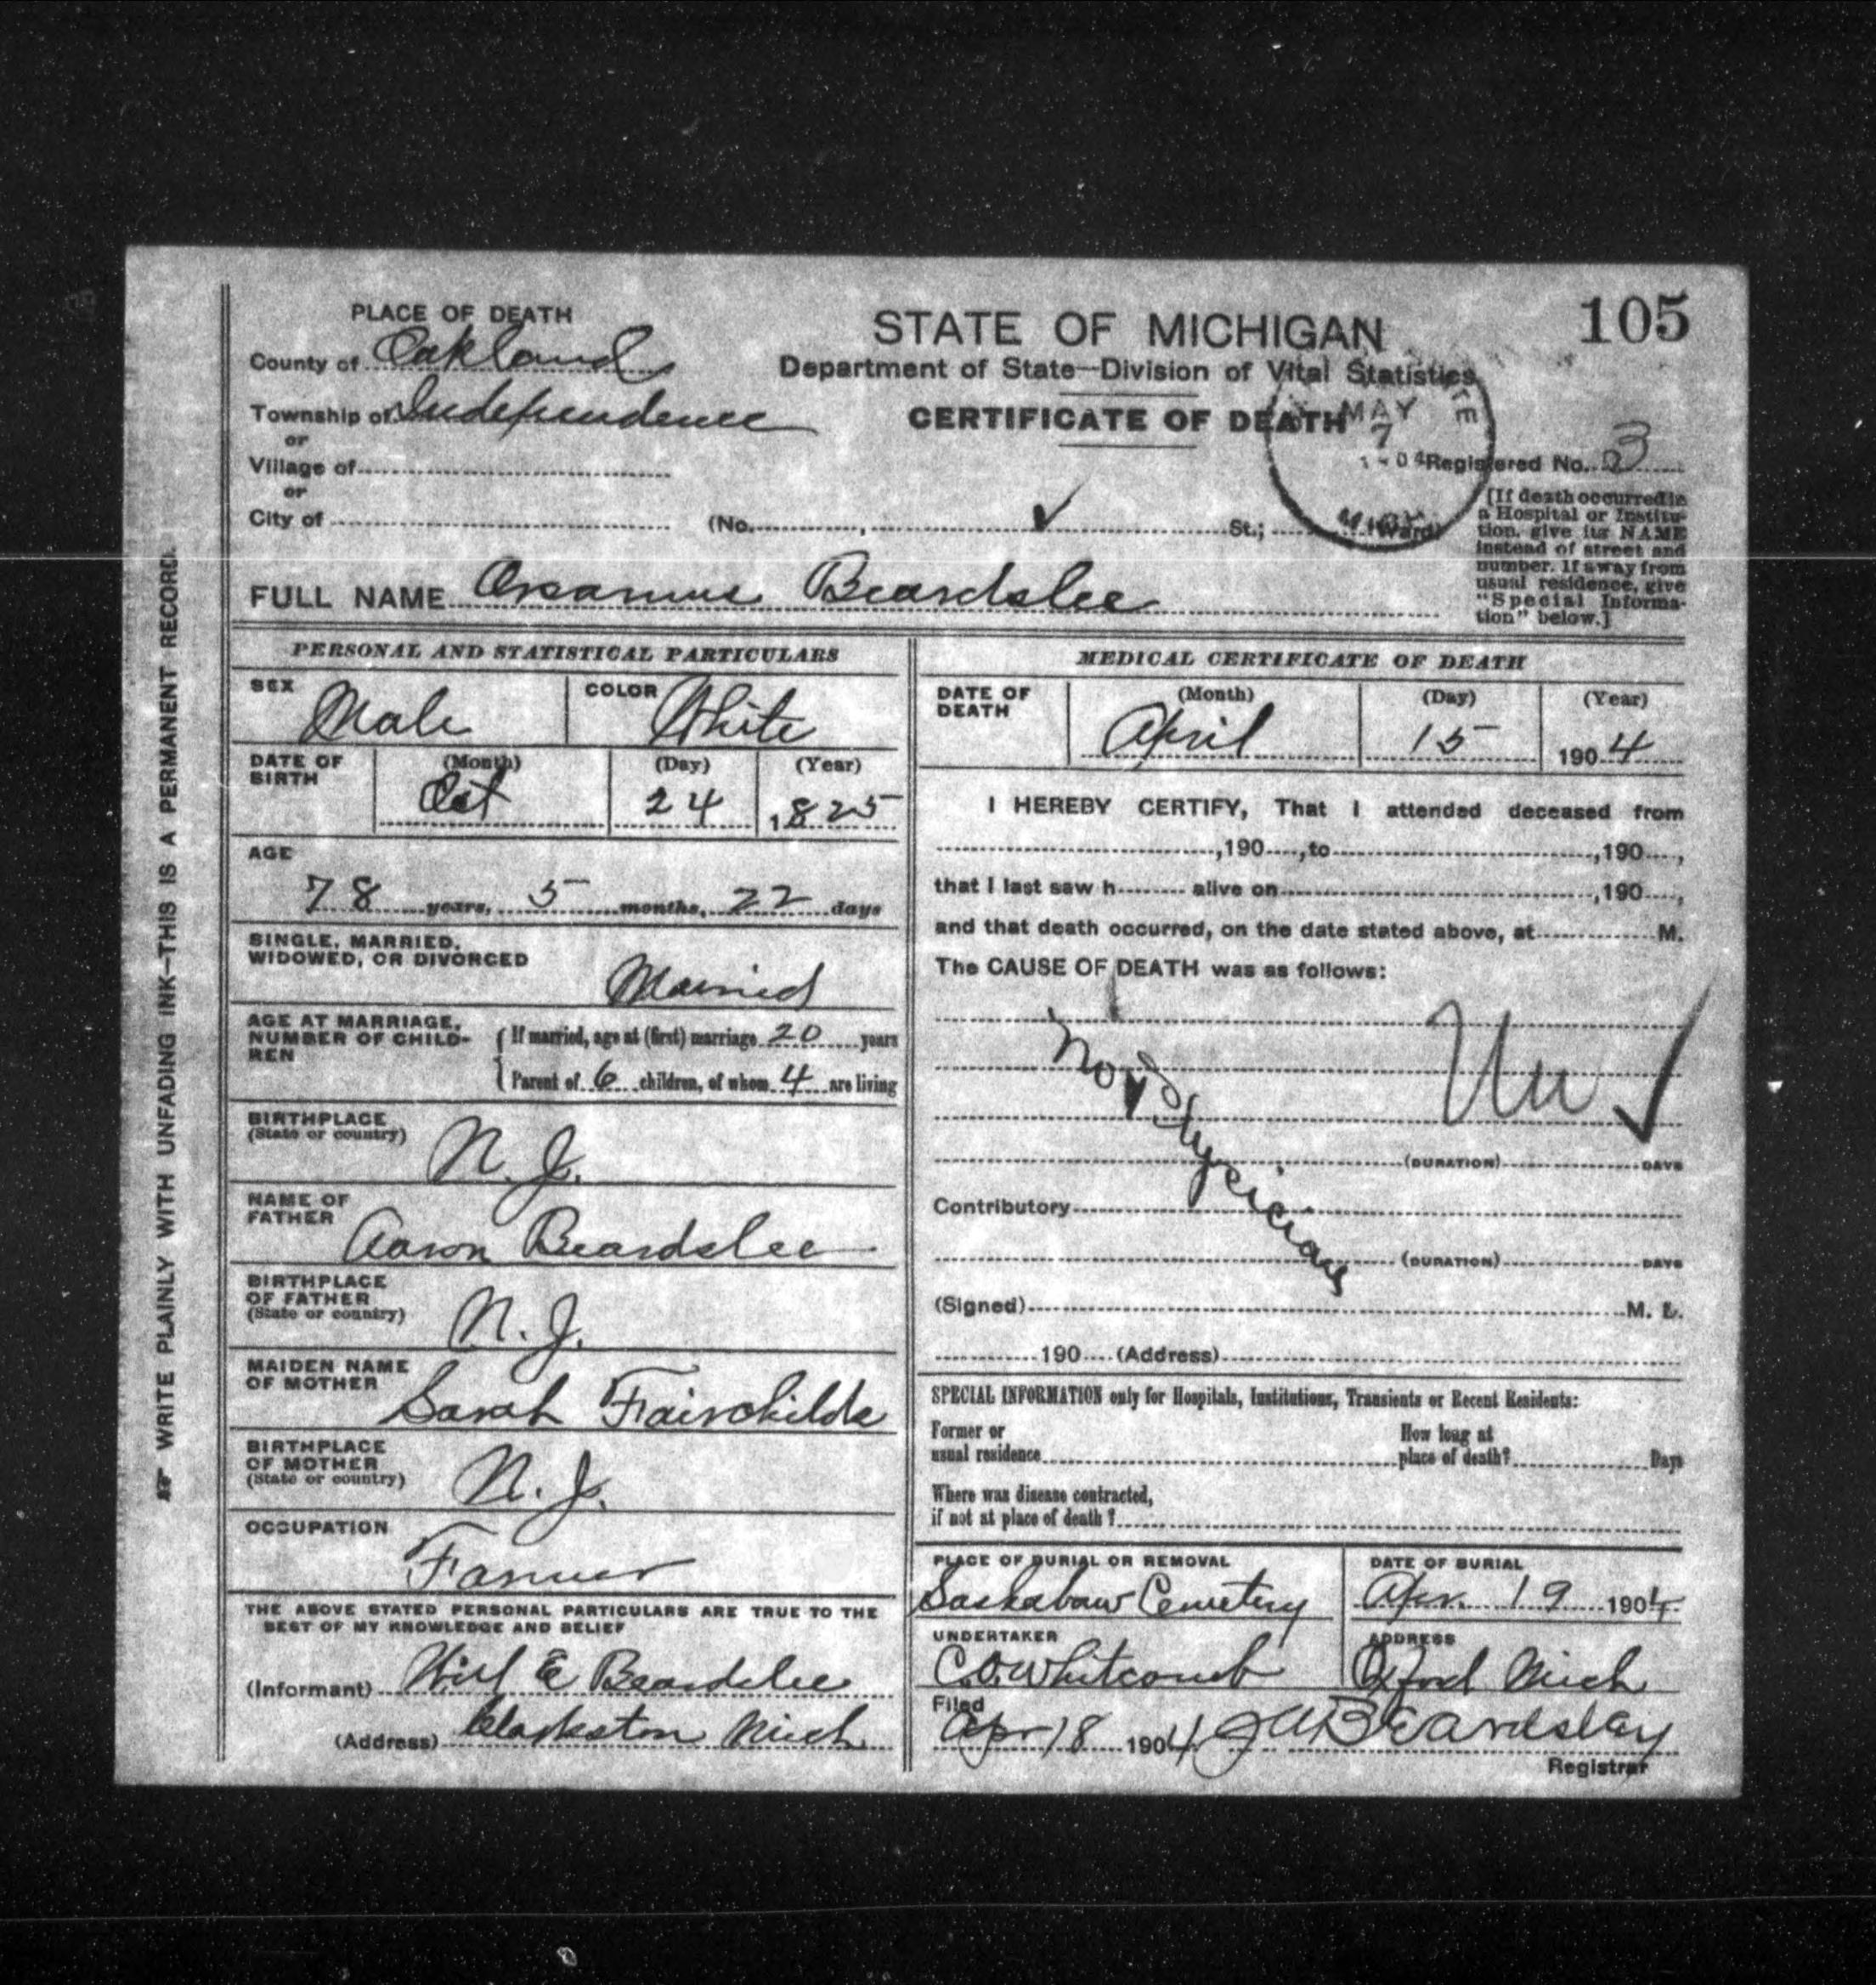 105
PLACE OF DEATH
County of Oakland
Township of Independence
or
Village of
or
City of
STATE OF MICHIGAN
Department of State—Division of Vital Statistics
CERTIFICATE OF DEATH
MAY
7
Registered No. 3
(No. , St.; Ward)
[If death occurred in
a Hospital or Institu-
tion, give its NAME
instead of street and
number. If away from
usual residence, give
"Special Informa-
tion" below.]
FULL NAME Orsamus Beardslee
WRITE PLAINLY WITH UNFADING INK—THIS IS A PERMANENT RECORD.
PERSONAL AND STATISTICAL PARTICULARS
SEX Male COLOR White
DATE OF BIRTH (Month) Oct (Day) 24 (Year) 1825
AGE
78 years, 5 months, 22 days
SINGLE, MARRIED,
WIDOWED, OR DIVORCED Married
AGE AT MARRIAGE,
NUMBER OF CHILD-
REN
If married, age at (first) marriage 20 years
Parent of 6 children, of whom 4 are living
BIRTHPLACE
(State or country) N. J.
NAME OF
FATHER Aaron Beardslee
BIRTHPLACE
OF FATHER
(State or country) N. J.
MAIDEN NAME
OF MOTHER Sarah Fairchilds
BIRTHPLACE
OF MOTHER
(State or country) N. J.
OCCUPATION
Farmer
THE ABOVE STATED PERSONAL PARTICULARS ARE TRUE TO THE
BEST OF MY KNOWLEDGE AND BELIEF
(Informant) Will E Beardslee
(Address) Clarkston Mich
MEDICAL CERTIFICATE OF DEATH
DATE OF DEATH (Month) April (Day) 15 (Year) 1904
I HEREBY CERTIFY, That I attended deceased from
, 190 , to , 190 ,
that I last saw h alive on , 190 ,
and that death occurred, on the date stated above, at M.
The CAUSE OF DEATH was as follows:
No Physician
Un
(DURATION) DAYS
Contributory
(DURATION) DAYS
(Signed) M. D.
190 (Address)
SPECIAL INFORMATION only for Hospitals, Institutions, Transients or Recent Residents:
Former or
usual residence
How long at
place of death? Days
Where was disease contracted,
if not at place of death?
PLACE OF BURIAL OR REMOVAL
Sashabaw Cemetery
DATE OF BURIAL
Apr. 19 1904
UNDERTAKER
C.O. Whitcomb
ADDRESS
Oxford Mich
Filed
Apr 18 1904 J A Beardsley
Registrar